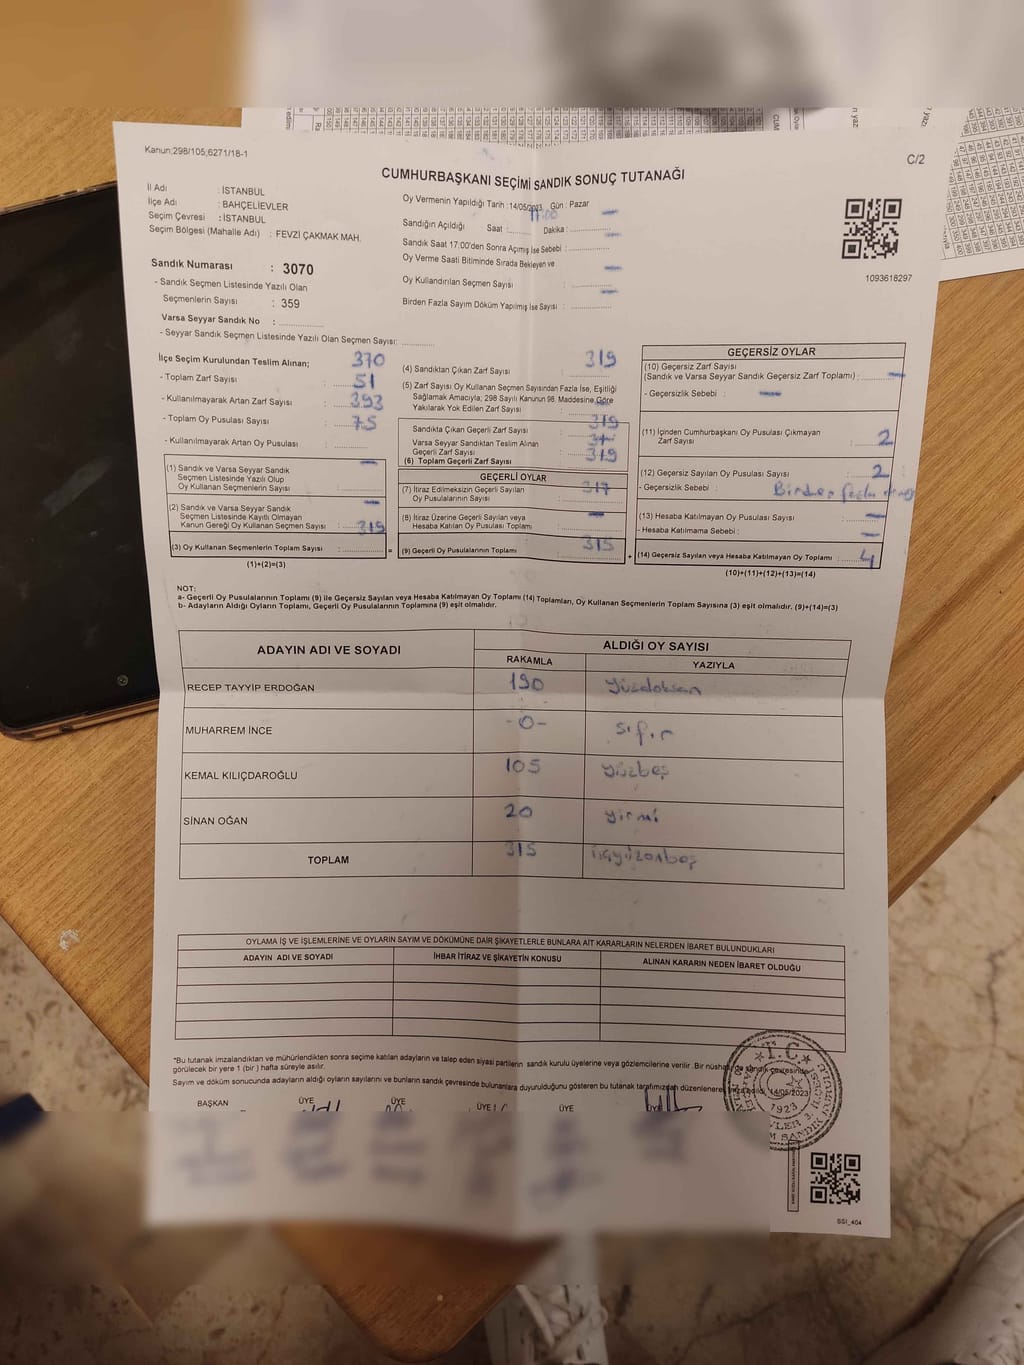 Kanun;298/105;6271/18-1
C/2
CUMHURBAŞKANI SEÇİMİ SANDIK SONUÇ TUTANAĞI
İl Adı : İSTANBUL
İlçe Adı : BAHÇELİEVLER
Seçim Çevresi : İSTANBUL
Seçim Bölgesi (Mahalle Adı) : FEVZİ ÇAKMAK MAH.
Sandık Numarası : 3070
- Sandık Seçmen Listesinde Yazılı Olan
Seçmenlerin Sayısı : 359
Varsa Seyyar Sandık No :
- Seyyar Sandık Seçmen Listesinde Yazılı Olan Seçmen Sayısı:
Oy Vermenin Yapıldığı Tarih : 14/05/2023 Gün : Pazar
Sandığın Açıldığı Saat : 17:00 Dakika : —
Sandık Saat 17:00'den Sonra Açımış İse Sebebi : —
Oy Verme Saati Bitiminde Sırada Bekleyen ve
Oy Kullandırılan Seçmen Sayısı : —
Birden Fazla Sayım Döküm Yapılmış İse Sayısı : —
1093618297
İlçe Seçim Kurulundan Teslim Alınan;
- Toplam Zarf Sayısı : 370
- Kullanılmayarak Artan Zarf Sayısı : 51
- Toplam Oy Pusulası Sayısı : 393
- Kullanılmayarak Artan Oy Pusulası : 75
(1) Sandık ve Varsa Seyyar Sandık
Seçmen Listesinde Yazılı Olup
Oy Kullanan Seçmenlerin Sayısı : —
(2) Sandık ve Varsa Seyyar Sandık
Seçmen Listesinde Kayıtlı Olmayan
Kanun Gereği Oy Kullanan Seçmen Sayısı : —
(3) Oy Kullanan Seçmenlerin Toplam Sayısı : 319
(1)+(2)=(3)
(4) Sandıktan Çıkan Zarf Sayısı : 319
(5) Zarf Sayısı Oy Kullanan Seçmen Sayısından Fazla İse, Eşitliği
Sağlamak Amacıyla; 298 Sayılı Kanunun 98. Maddesine Göre
Yakılarak Yok Edilen Zarf Sayısı : —
Sandıkta Çıkan Geçerli Zarf Sayısı : 319
Varsa Seyyar Sandıktan Teslim Alınan
Geçerli Zarf Sayısı
(6) Toplam Geçerli Zarf Sayısı : 319
GEÇERLİ OYLAR
(7) İtiraz Edilmeksizin Geçerli Sayılan
Oy Pusulalarının Sayısı : 317
(8) İtiraz Üzerine Geçerli Sayılan veya
Hesaba Katılan Oy Pusulası Toplamı : —
(9) Geçerli Oy Pusulalarının Toplamı : 315
GEÇERSİZ OYLAR
(10) Geçersiz Zarf Sayısı
(Sandık ve Varsa Seyyar Sandık Geçersiz Zarf Toplamı) : —
- Geçersizlik Sebebi : —
(11) İçinden Cumhurbaşkanı Oy Pusulası Çıkmayan
Zarf Sayısı : 2
(12) Geçersiz Sayılan Oy Pusulası Sayısı : 2
- Geçersizlik Sebebi : Birden fazla
(13) Hesaba Katılmayan Oy Pusulası Sayısı : —
- Hesaba Katılmama Sebebi : —
(14) Geçersiz Sayılan veya Hesaba Katılmayan Oy Toplamı : 4
(10)+(11)+(12)+(13)=(14)
NOT:
a- Geçerli Oy Pusulalarının Toplamı (9) ile Geçersiz Sayılan veya Hesaba Katılmayan Oy Toplamı (14) Toplamları, Oy Kullanan Seçmenlerin Toplam Sayısına (3) eşit olmalıdır. (9)+(14)=(3)
b- Adayların Aldığı Oyların Toplamı, Geçerli Oy Pusulalarının Toplamına (9) eşit olmalıdır.
ADAYIN ADI VE SOYADI ALDIĞI OY SAYISI
RAKAMLA YAZIYLA
RECEP TAYYİP ERDOĞAN 190 Yüzdoksan
MUHARREM İNCE -0- sıfır
KEMAL KILIÇDAROĞLU 105 yüzbeş
SİNAN OĞAN 20 yirmi
TOPLAM 315 üçyüzonbeş
OYLAMA İŞ VE İŞLEMLERİNE VE OYLARIN SAYIM VE DÖKÜMÜNE DAİR ŞİKAYETLERLE BUNLARA AİT KARARLARIN NELERDEN İBARET BULUNDUKLARI
ADAYIN ADI VE SOYADI İHBAR İTİRAZ VE ŞİKAYETİN KONUSU ALINAN KARARIN NEDEN İBARET OLDUĞU
*Bu tutanak imzalandıktan ve mühürlendikten sonra seçime katılan adayların ve talep eden siyasi partilerin sandık kurulu üyelerine veya gözlemcilerine verilir. Bir nüshası da sandık çevresinde
görülecek bir yere 1 (bir) hafta süreyle asılır.
Sayım ve döküm sonucunda adayların aldığı oyların sayılarını ve bunların sandık çevresinde bulunanlara duyurulduğunu gösteren bu tutanak tarafımızdan düzenlenerek imza edildi. 14/05/2023
BAŞKAN ÜYE ÜYE ÜYE ÜYE ÜYE
T.C.
1923
SSI_404